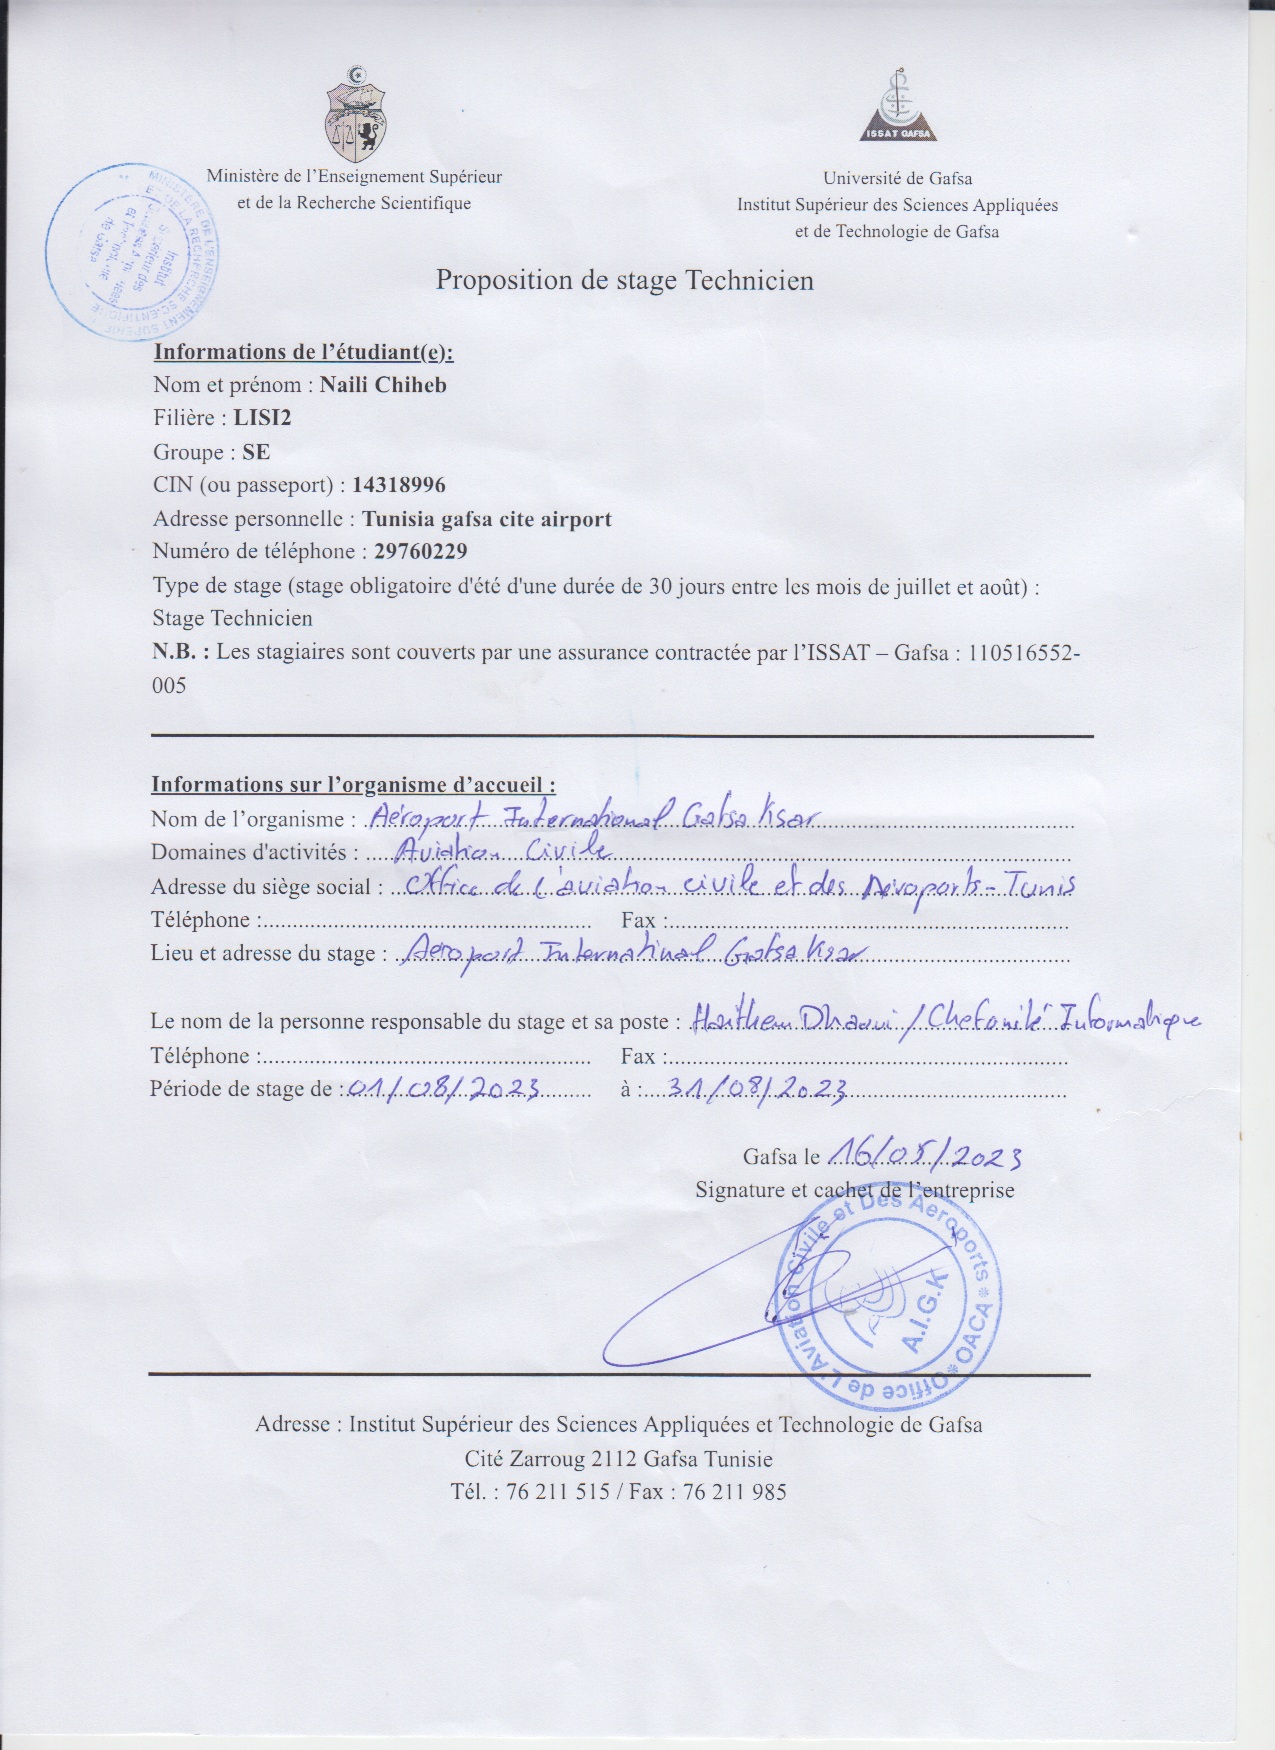 ISSAT GAFSA
Ministère de l'Enseignement Supérieur
et de la Recherche Scientifique
Université de Gafsa
Institut Supérieur des Sciences Appliquées
et de Technologie de Gafsa
MINISTÈRE DE L'ENSEIGNEMENT SUPÉRIEUR
ET DE LA RECHERCHE SCIENTIFIQUE
Institut
Supérieur des
de Gafsa
Proposition de stage Technicien
Informations de l'étudiant(e):
Nom et prénom : Naili Chiheb
Filière : LISI2
Groupe : SE
CIN (ou passeport) : 14318996
Adresse personnelle : Tunisia gafsa cite airport
Numéro de téléphone : 29760229
Type de stage (stage obligatoire d'été d'une durée de 30 jours entre les mois de juillet et août) :
Stage Technicien
N.B. : Les stagiaires sont couverts par une assurance contractée par l'ISSAT – Gafsa : 110516552-
005
Informations sur l'organisme d'accueil :
Nom de l'organisme : Aéroport International Gafsa Ksar
Domaines d'activités : Aviation Civile
Adresse du siège social : Office de l'aviation civile et des Aéroports - Tunis
Téléphone : Fax :
Lieu et adresse du stage : Aeroport International Gafsa Ksar
Le nom de la personne responsable du stage et sa poste : Haithem Dhaoui / Chef unité Informatique
Téléphone : Fax :
Période de stage de : 01/08/2023 à : 31/08/2023
Gafsa le 16/05/2023
Signature et cachet de l'entreprise
Office de L'Aviation Civile et Des Aeroports * OACA *
A.I.G.K
Adresse : Institut Supérieur des Sciences Appliquées et Technologie de Gafsa
Cité Zarroug 2112 Gafsa Tunisie
Tél. : 76 211 515 / Fax : 76 211 985